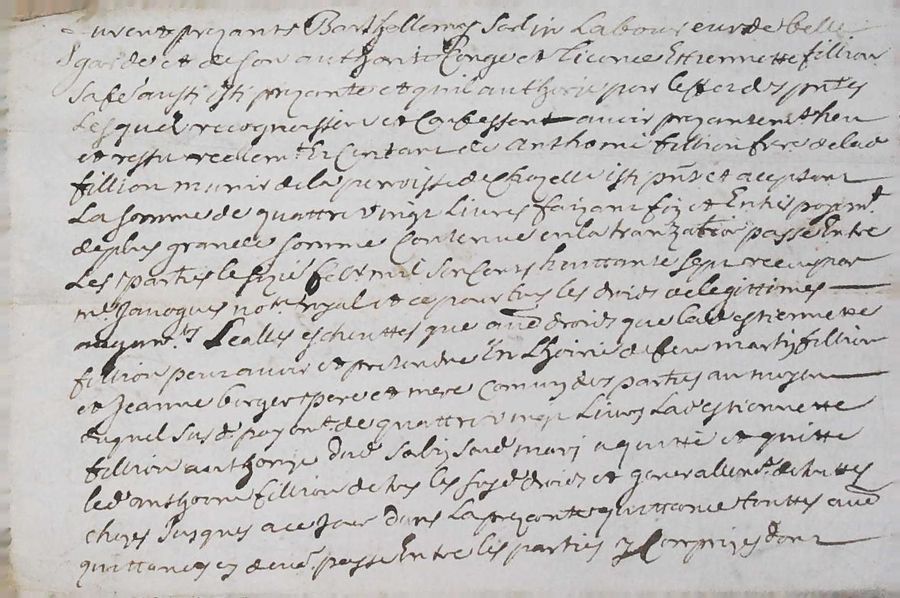 furent presants Barthellemy Sadin Laboureur de belle
garde et de son authorite Conge et Licence Estiennette fillion
sa fe aussi isti presante et quil authorise par leffet des pntes
Lesquelz recognoissent et Confessent avoir presentemt heu
et ressu reellemt En Contant de Anthoine fillion frere de lad
fillion munir de la parroisse de Chazelle isti pnt et aceptant
La somme de quattre vingt Livres faizant foy et Entier payemt
de plus grande somme Contenue en la tranzation passe Entre
Les parties le febr mil six Cents huittante sept receu par
me Janoques notre royal et ce pour tous les droits de legittimes
augmts Lealles escheuttes que aud droits que lad estiennette
fillion peu avoir et pretendre En Lhoirie de feu martin fillion
et Jeanne berger pere et mere Comuns des parties au moyen
duquel susd payemt de quattre vingt Livres Lad estiennette
fillion authorize dud Sadin sond mary a quitte et quitte
led anthoine fillion de tous les susd droits et generallemt de touttes
choses Jusques a ce Jour dans La presante quittance touttes aud
quittances cy devt passe Entre les parties y Comprizes dont